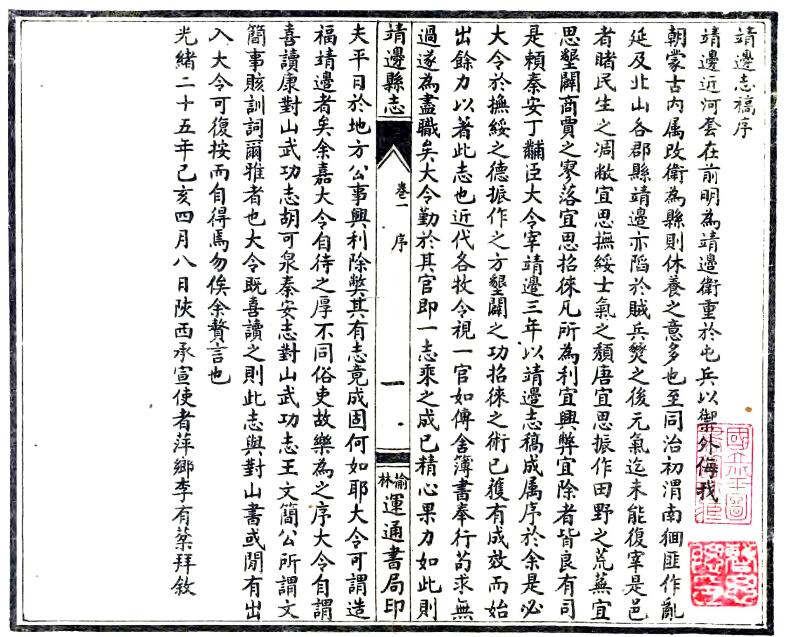 靖邊志稿序
靖邊近河套在前明為靖邊衛重於屯兵以禦外侮我
朝蒙古内属改衛為縣則休養之意多也至同治初渭南徊匪作亂
延及北山各郡縣靖邊亦陷於賊兵燹之後元氣迄未能復宰是邑
者睹民生之凋敝宜思撫綏士氣之頹唐宜思振作田野之荒蕪宜
思墾闢商賈之寥落宜思招徠凡所為利宜興弊宜除者皆良有司
是賴秦安丁黼臣大令宰靖邊三年以靖邊志稿成属序於余是必
大令於撫綏之德振作之方墾闢之功招徠之術已獲有成效而始
出餘力以著此志也近代各牧令視一官如傳舍簿書奉行苟求無
過遂為盡職矣大令勤於其官即一志乘之成已精心果力如此則
靖邊縣志
卷一
序
一
榆林
運通書局印
夫平日於地方公事興利除獘其有志竟成固何如耶大令可謂造
福靖邊者矣余嘉大令自待之厚不同俗吏故樂為之序大令自謂
喜讀康對山武功志胡可泉秦安志對山武功志王文簡公所謂文
簡事賅訓詞爾雅者也大令既喜讀之則此志與對山書或閒有出
入大令可復按而自得焉勿俟余贅言也
光緒二十五年己亥四月八日陝西承宣使者萍鄉李有棻拜敘